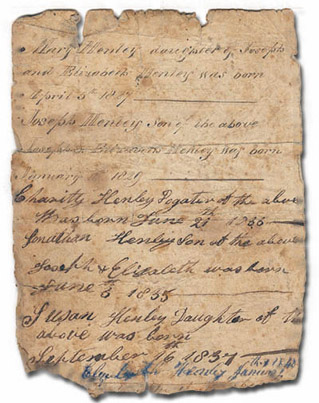 Mary Henley daughter of Joseph
and Elizabeth Henley was born
April 5th 1827
Joseph Henley Son of the above
Joseph & Elizabeth Henley was born
January 1829
Charity Henley Dogater of the above
Was born June 21th 1833
Jonathan Henley Son of the above
Joseph & Elizabeth was born
June 3 1835
Susan Henley Daughter of the
above was born
September 16th 1837
Henley January